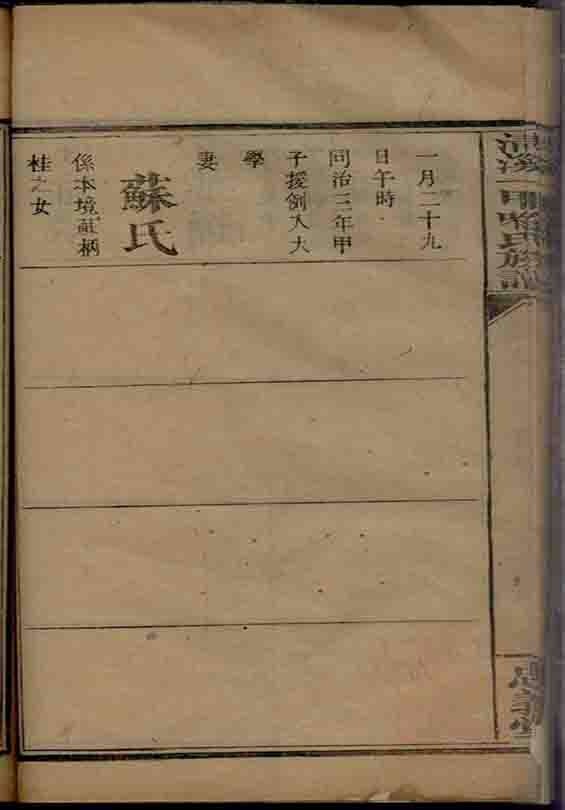 一月二十九
日午時
同治三年甲
子援例入大
學
妻
蘇氏
係本境蘇柄
桂之女